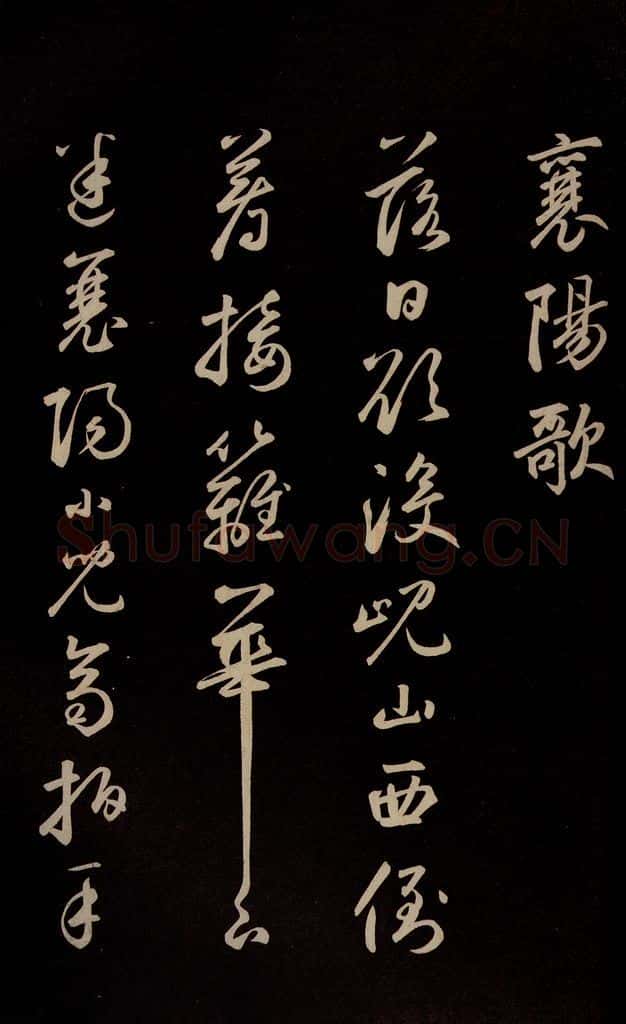 襄陽歌
落日欲沒峴山西倒
著接籬華下
迷襄陽小兒齊拍手
Shufawang.CN